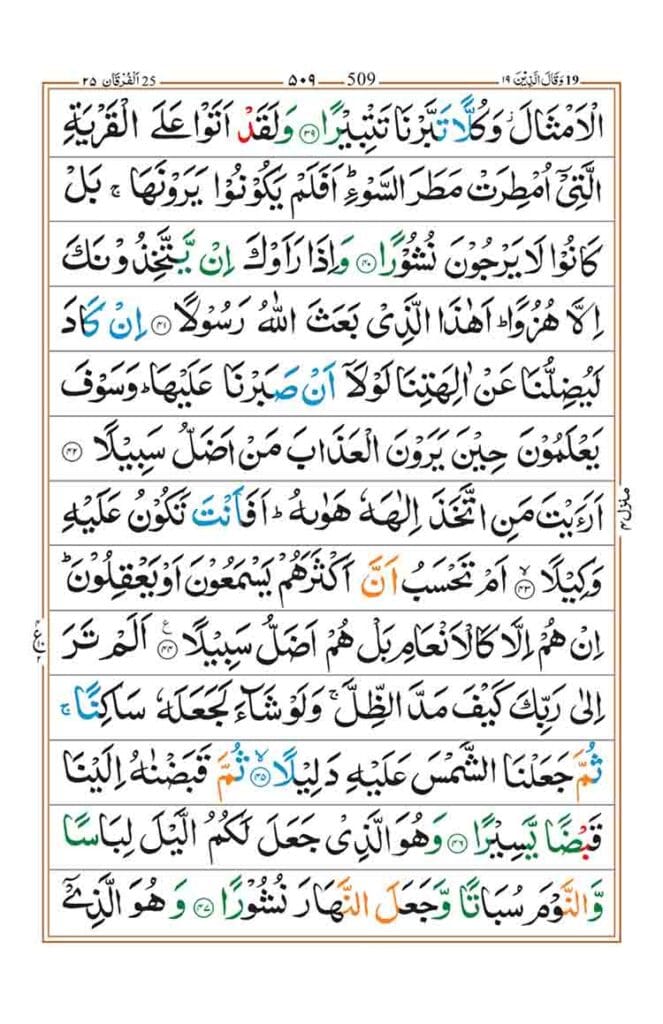 ١٩ وَقَالَ الَّذِيْنَ 19 509 ٥٠٩ 25 اَلْفُرْقَان ٢٥
الْاَمْثَالَ ز وَكُلًّا تَبَّرْنَا تَتْبِيْرًا ۝٣٩ وَلَقَدْ اَتَوْا عَلَى الْقَرْيَةِ
الَّتِيْٓ اُمْطِرَتْ مَطَرَ السَّوْءِ ؕ اَفَلَمْ يَكُوْنُوْا يَرَوْنَهَا ۚ بَلْ
كَانُوْا لَا يَرْجُوْنَ نُشُوْرًا ۝٤٠ وَاِذَا رَاَوْكَ اِنْ يَّتَّخِذُوْنَكَ
اِلَّا هُزُوًا ؕ اَهٰذَا الَّذِيْ بَعَثَ اللّٰهُ رَسُوْلًا ۝٤١ اِنْ كَادَ
لَيُضِلُّنَا عَنْ اٰلِهَتِنَا لَوْلَآ اَنْ صَبَرْنَا عَلَيْهَا ؕ وَسَوْفَ
يَعْلَمُوْنَ حِيْنَ يَرَوْنَ الْعَذَابَ مَنْ اَضَلُّ سَبِيْلًا ۝٤٢
اَرَءَيْتَ مَنِ اتَّخَذَ اِلٰهَهٗ هَوٰىهُ ؕ اَفَاَنْتَ تَكُوْنُ عَلَيْهِ
وَكِيْلًا ۙ۝٤٣ اَمْ تَحْسَبُ اَنَّ اَكْثَرَهُمْ يَسْمَعُوْنَ اَوْ يَعْقِلُوْنَ ؕ
اِنْ هُمْ اِلَّا كَالْاَنْعَامِ بَلْ هُمْ اَضَلُّ سَبِيْلًا ۝٤٤ ع اَلَمْ تَرَ
اِلٰى رَبِّكَ كَيْفَ مَدَّ الظِّلَّ ۚ وَلَوْ شَآءَ لَجَعَلَهٗ سَاكِنًا ۚ
ثُمَّ جَعَلْنَا الشَّمْسَ عَلَيْهِ دَلِيْلًا ۙ۝٤٥ ثُمَّ قَبَضْنٰهُ اِلَيْنَا
قَبْضًا يَّسِيْرًا ۝٤٦ وَهُوَ الَّذِيْ جَعَلَ لَكُمُ الَّيْلَ لِبَاسًا
وَّالنَّوْمَ سُبَاتًا وَّجَعَلَ النَّهَارَ نُشُوْرًا ۝٤٧ وَهُوَ الَّذِيْٓ
منزل ٤